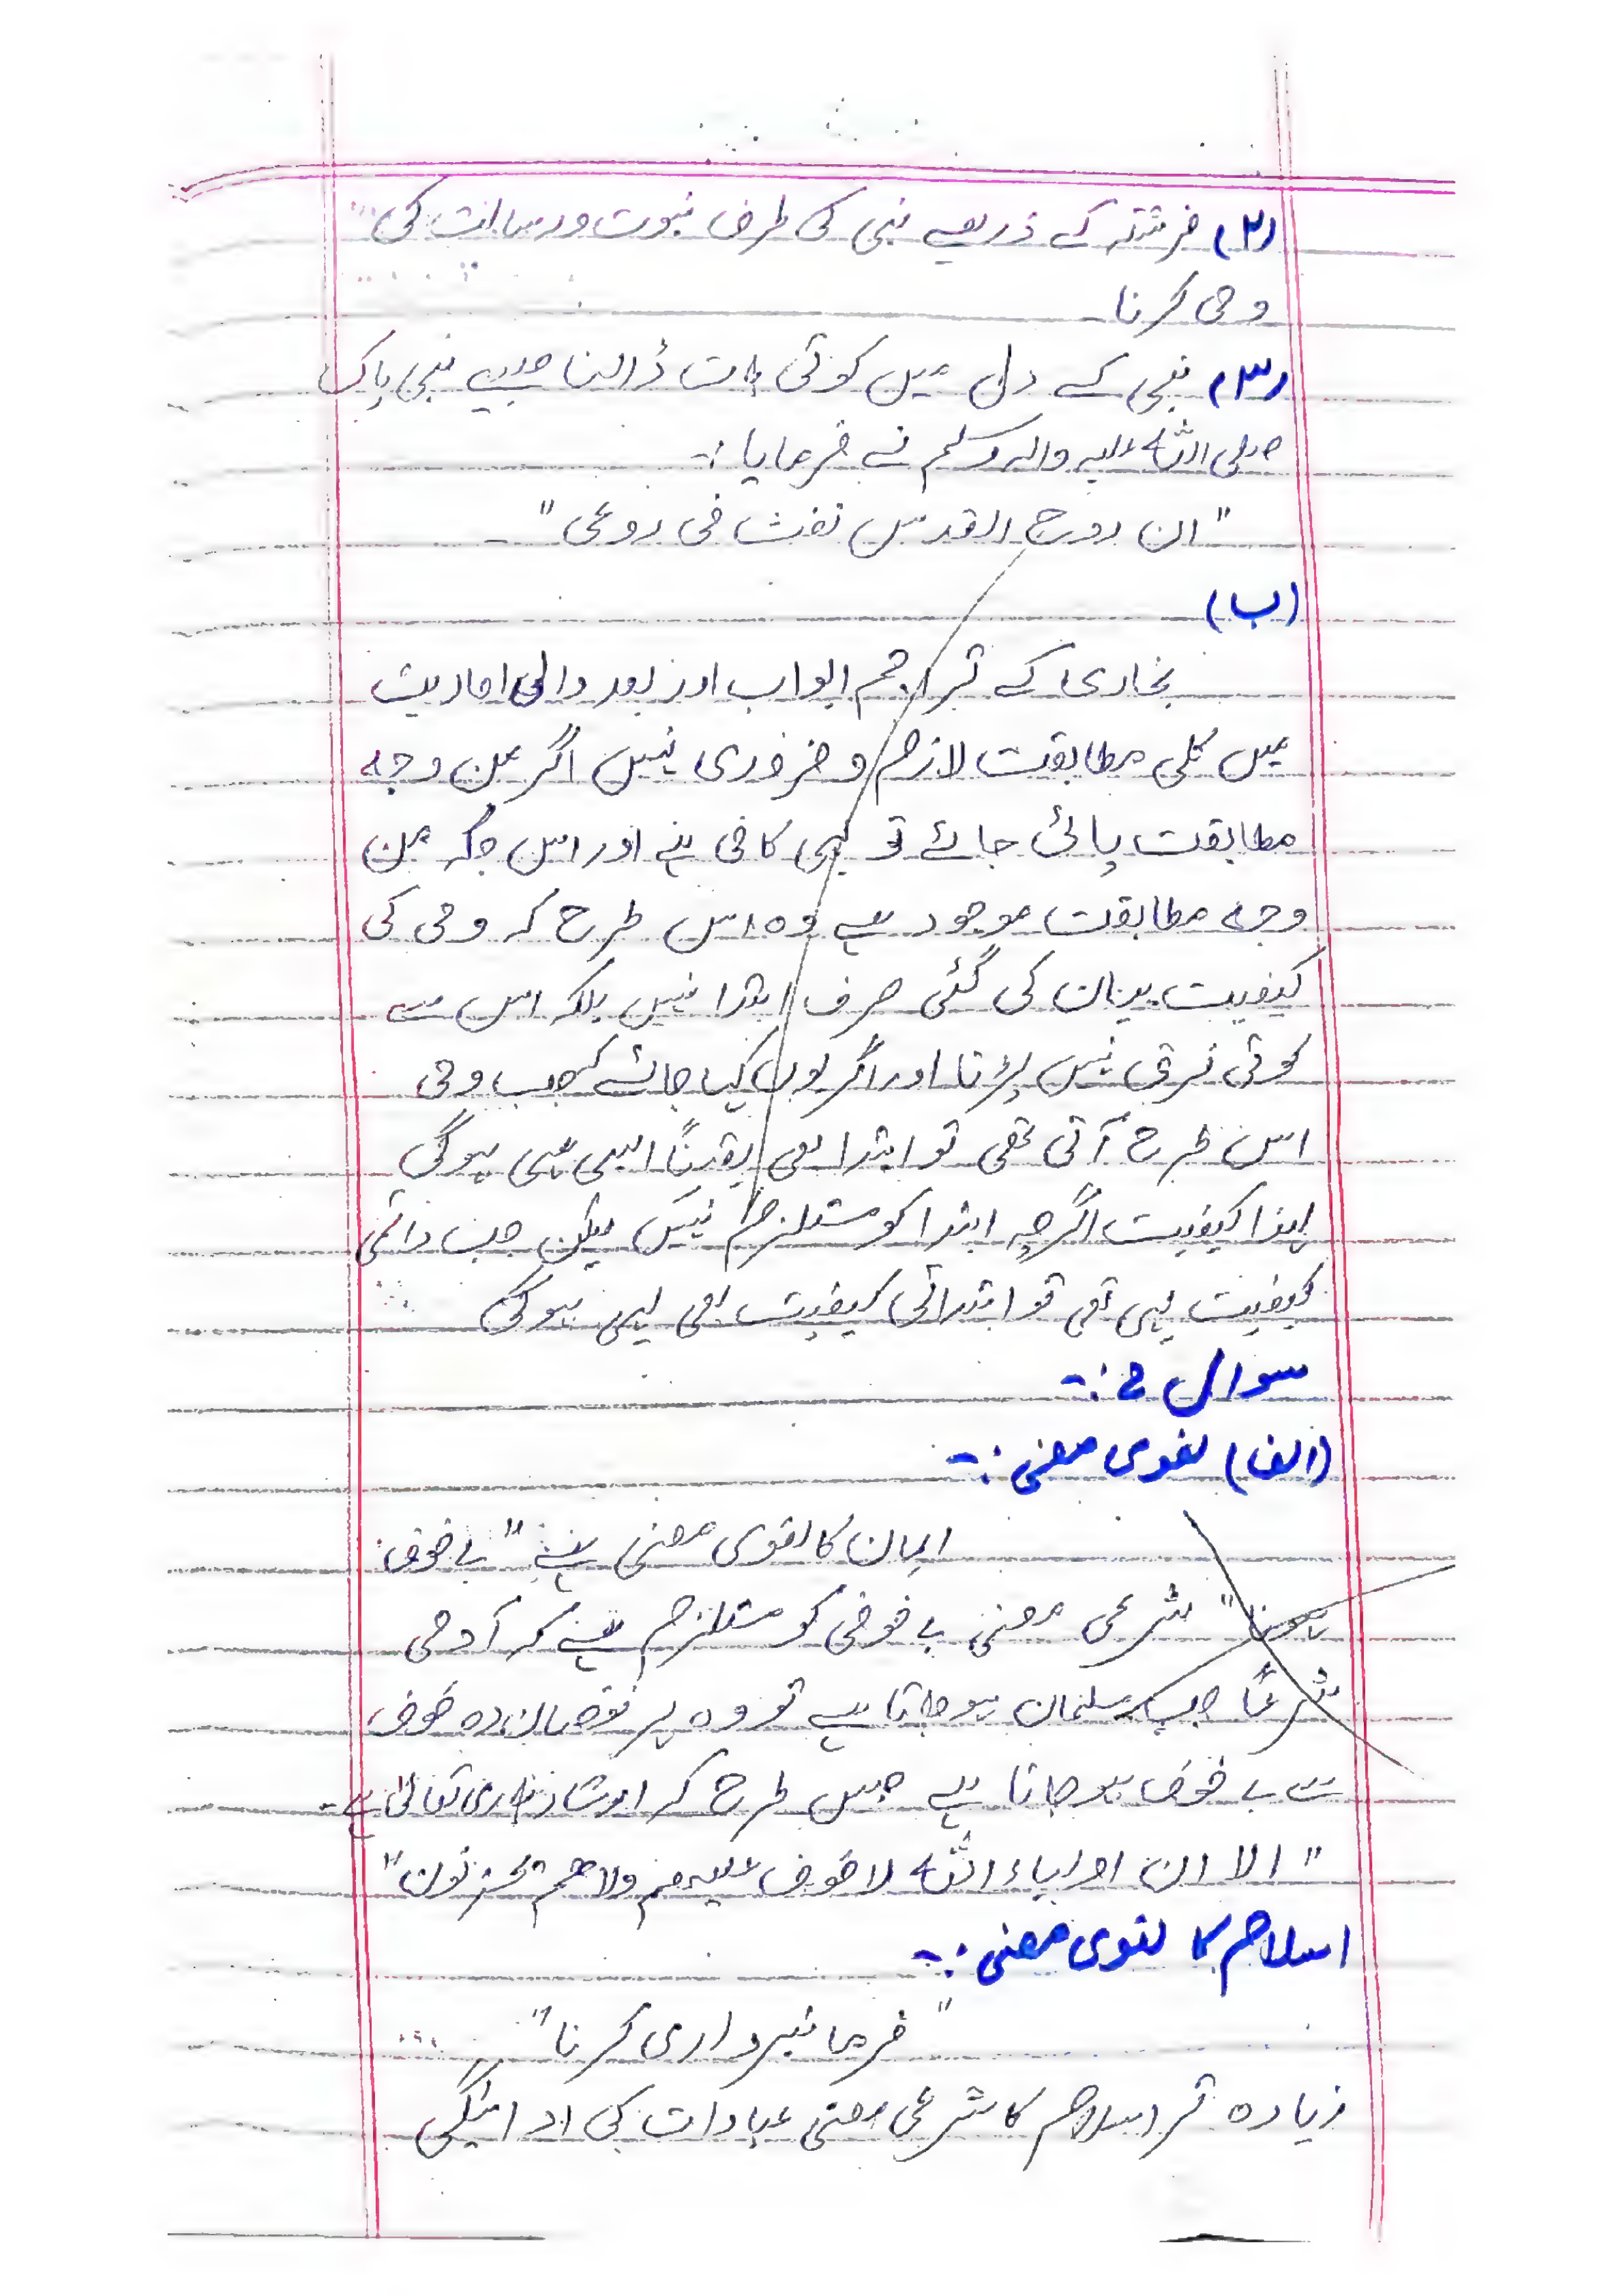 (۲) فرشتہ کے ذریعے نبی کی طرف نبوت و رسالت کی
وحی کرنا۔
(۳) نبی کے دل میں کوئی بات ڈالنا جیسے نبی پاک
صلی اللہ علیہ والہ وسلم نے فرمایا :-
"ان روح القدس نفث فی روعی"۔
(ب)
بخاری کے تراجم ابواب اور بعد والی احادیث
میں کلی مطابقت لازم و ضروری نہیں اگر من وجہ
مطابقت پائی جائے تو یہی کافی ہے اور اس جگہ من
وجہ مطابقت موجود ہے وہ اس طرح کہ وحی کی
کیفیت بیان کی گئی صرف ابتدا نہیں بلکہ اس سے
کوئی فرق نہیں پڑتا اور اگر یوں کہا جائے کہ جب وحی
اس طرح آتی تھی تو ابتدا بھی یقیناً ایسی ہی ہوگی
لہذا کیفیت اگرچہ ابتدا کو مستلزم نہیں لیکن جب دائمی
کیفیت یہی تھی تو ابتدائی کیفیت بھی یہی ہوگی
سوال 2 :-
(الف) لغوی معنی :-
ایمان کا لغوی معنی ہے "بے خوف
ہونا" شرعی معنی بے خوفی کو مستلزم ہے کہ آدمی
شرعاً جب مسلمان ہو جاتا ہے تو وہ ہر نقصان دہ خوف
سے بے خوف ہو جاتا ہے جس طرح کہ ارشاد باری تعالیٰ ہے۔
"الا ان اولیاء اللہ لا خوف علیھم ولا ھم یحزنون"
اسلام کا لغوی معنی :-
"فرمانبرداری کرنا"
زیادہ تر اسلام کا شرعی معنی عبادات کی ادائیگی